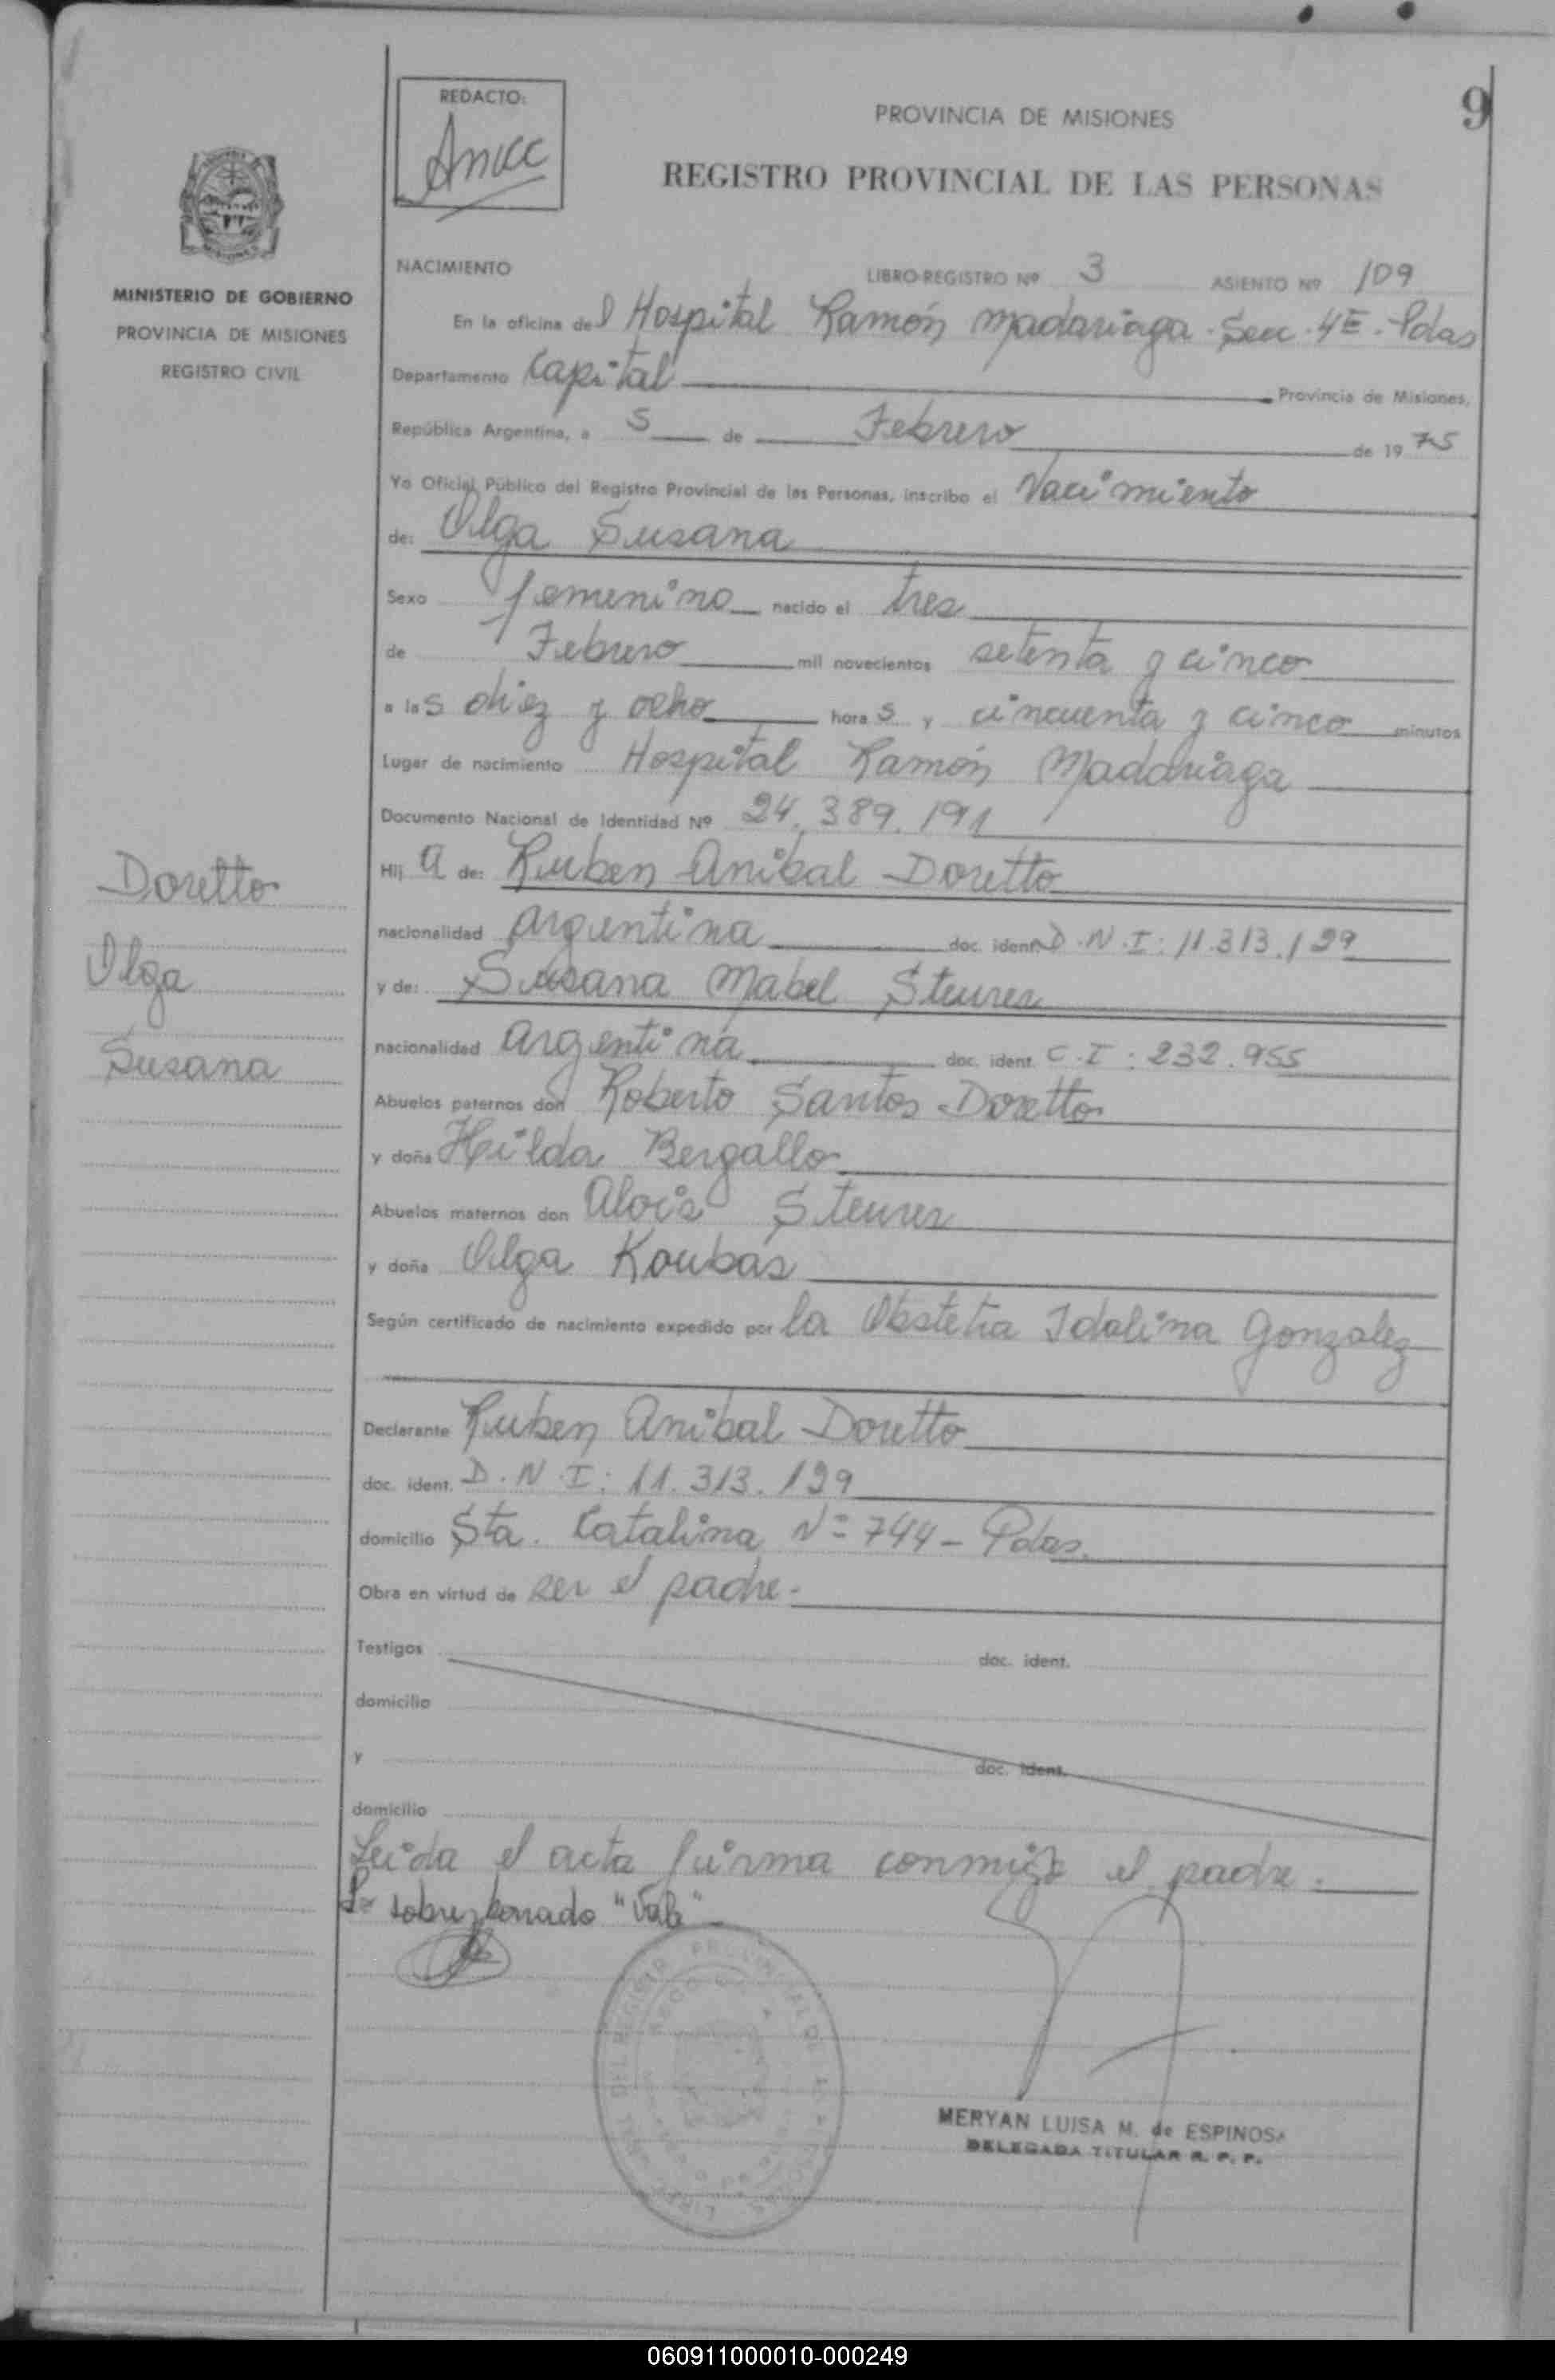 9
REDACTO:
PROVINCIA DE MISIONES
REGISTRO PROVINCIAL DE LAS PERSONAS
MINISTERIO DE GOBIERNO
PROVINCIA DE MISIONES
REGISTRO CIVIL
NACIMIENTO LIBRO-REGISTRO Nº 3 ASIENTO Nº 109
En la oficina del Hospital Ramón Madariaga - Secc. 4E - Pdas
Departamento Capital Provincia de Misiones,
República Argentina, a 5 de Febrero de 1975
Yo Oficial Público del Registro Provincial de las Personas, inscribo el Nacimiento
de: Olga Susana
Sexo femenino nacido el tres
de Febrero mil novecientos setenta y cinco
a las diez y ocho horas y cincuenta y cinco minutos
Lugar de nacimiento Hospital Ramón Madariaga
Documento Nacional de Identidad Nº 24.389.191
Hija de: Ruben Anibal Doretto
nacionalidad argentina doc. ident. D.N.I: 11.313.129
y de: Susana Mabel Steurer
nacionalidad argentina doc. ident. C.I: 232.955
Abuelos paternos don Roberto Santos Doretto
y doña Hilda Bergallo
Abuelos maternos don Alois Steurer
y doña Olga Koubas
Según certificado de nacimiento expedido por la Obstetra Idalina Gonzalez
Declarante Ruben Anibal Doretto
doc. ident. D.N.I: 11.313.129
domicilio Sta. Catalina Nº 744 - Pdas.
Obra en virtud de ser el padre.
Testigos doc. ident.
domicilio
y doc. ident.
domicilio
Leida el acta firma conmigo el padre.
Lo sobreborrado "Vale"
Doretto
Olga
Susana
MERYAN LUISA M. de ESPINOSA
DELEGADA TITULAR R. P. P.
060911000010-000249